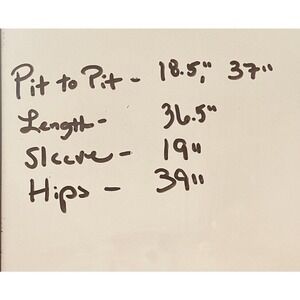 Pit to Pit - 18.5", 37"
Length - 36.5"
Sleeve - 19"
Hips - 39"